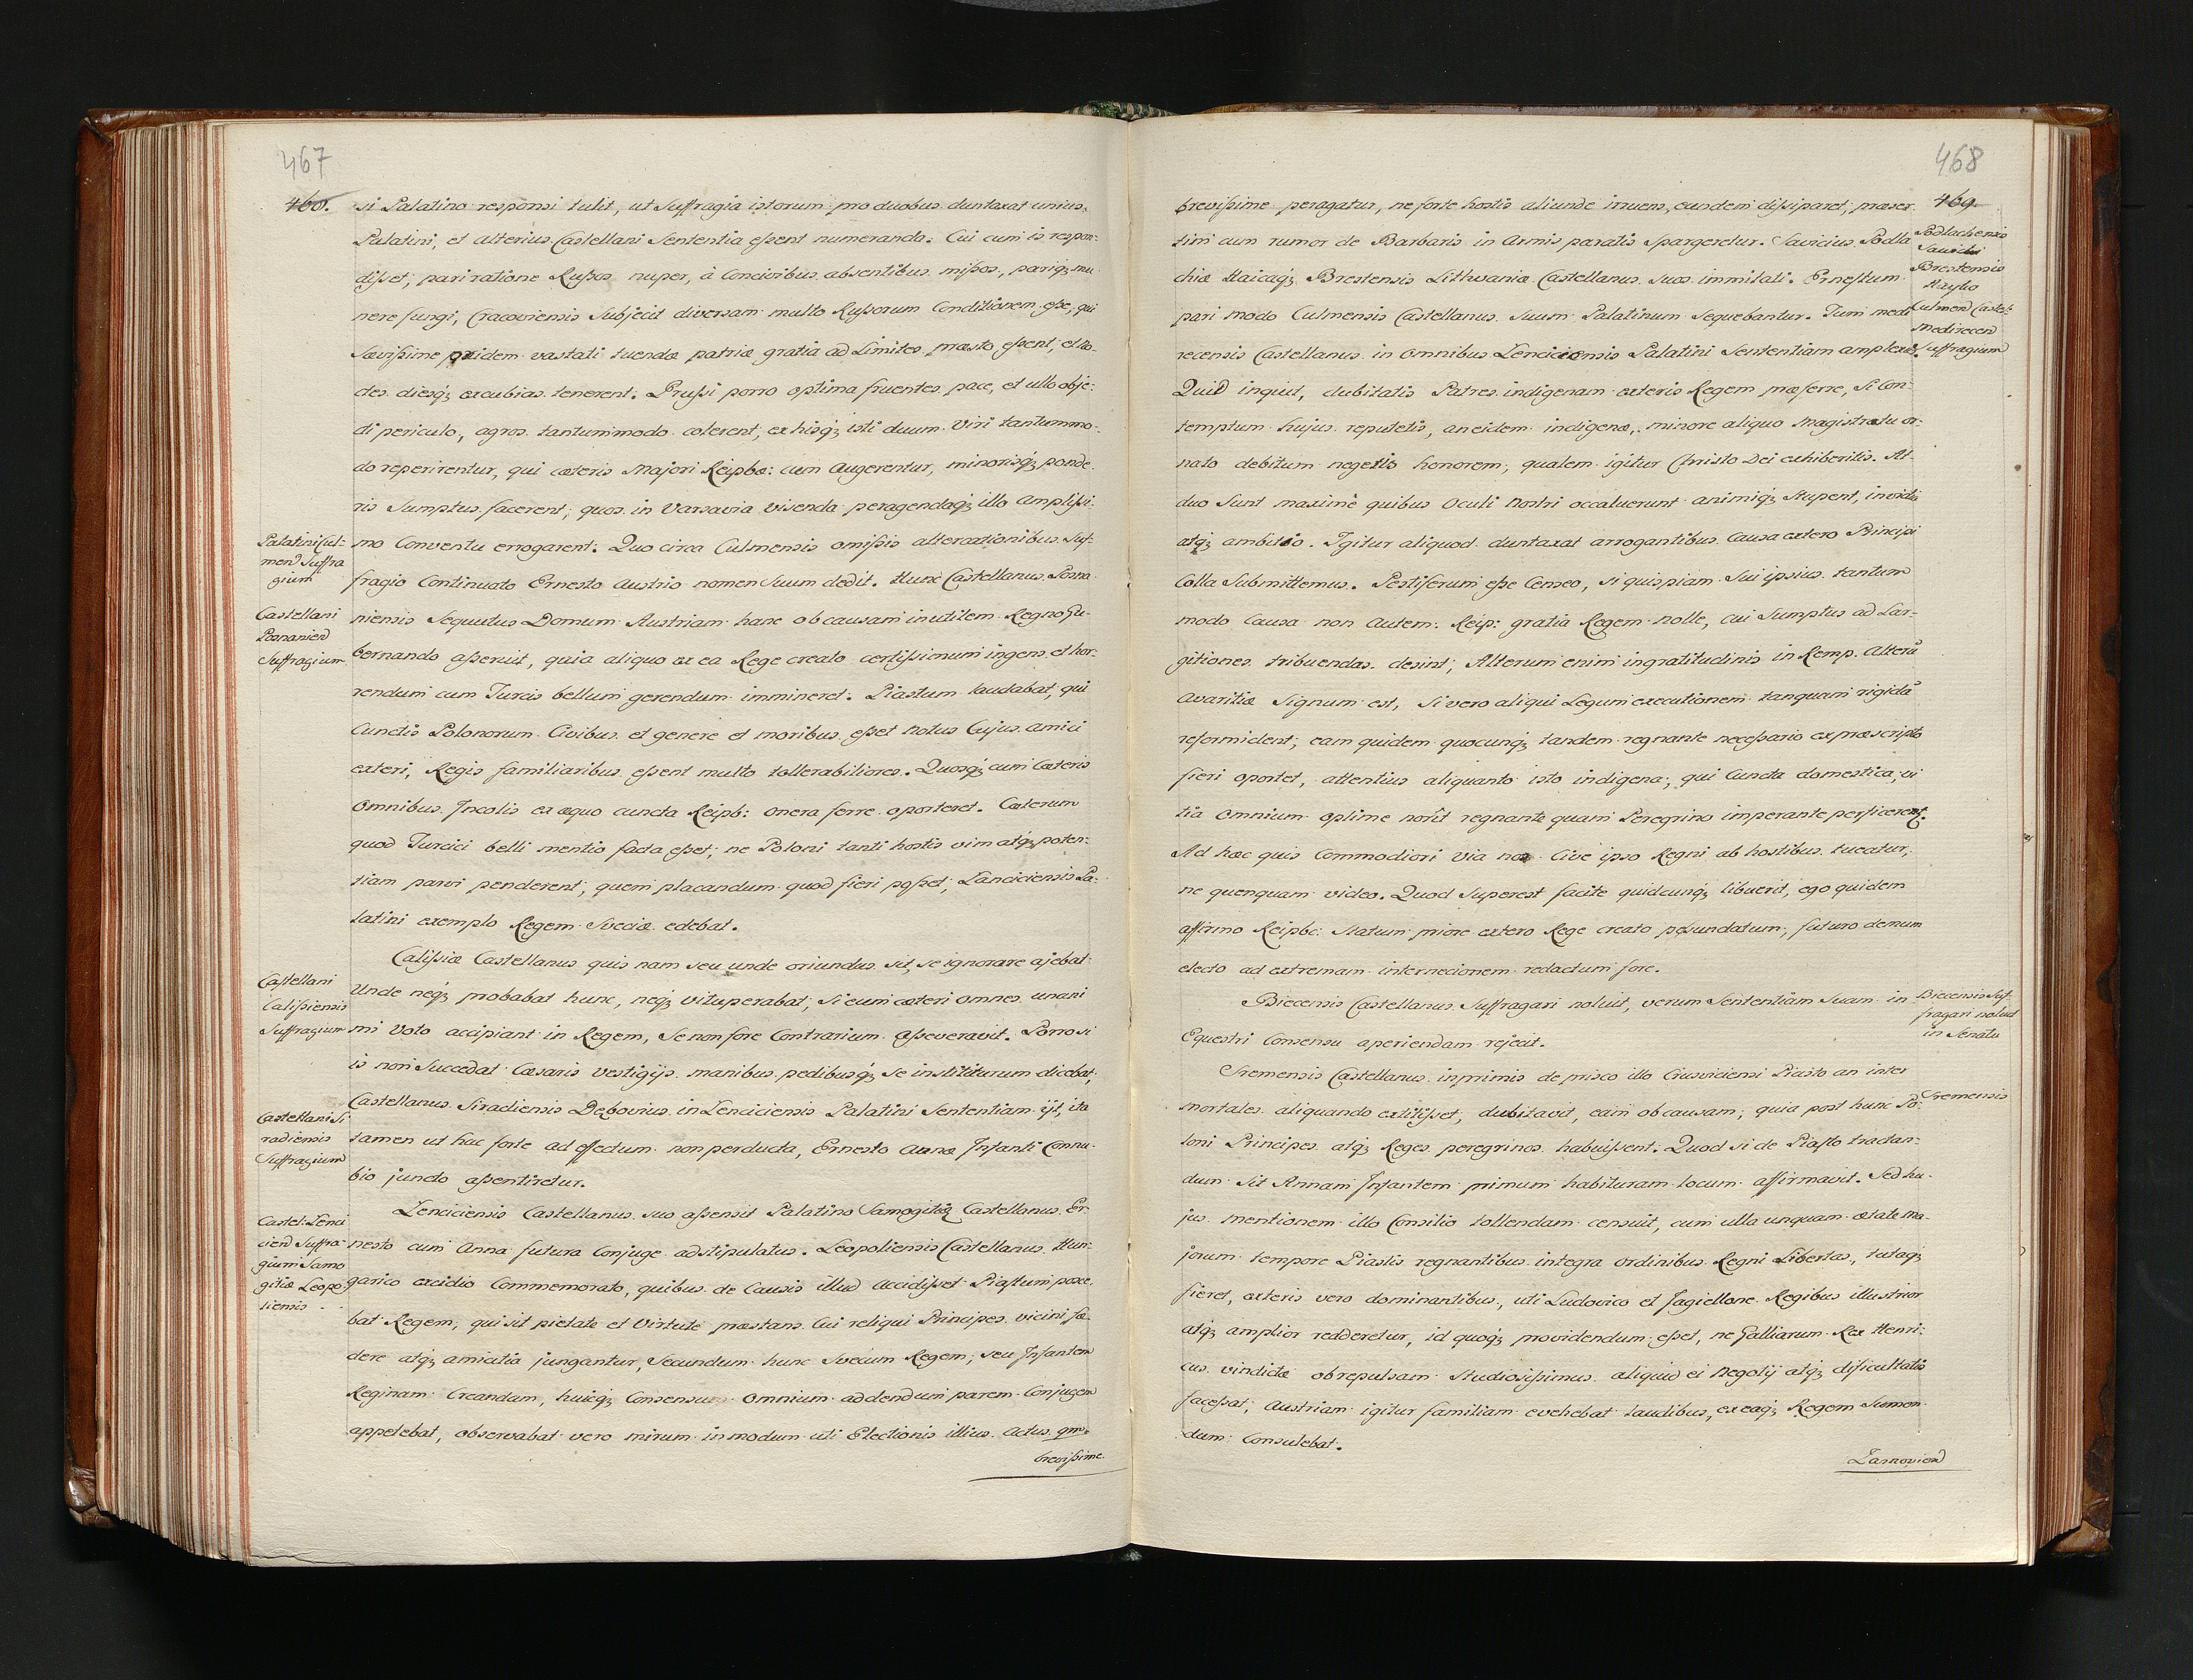 467
460.
si Palatino responsi tulit, ut Suffragia istorum pro duobus duntaxat unius,
Palatini, et alterius Castellani Sententia eßent numeranda. Cui cum is respon:
dißet, pari ratione Rußos nuper, à Concivibus absentibus mißos, pariq; mu
nere fungi, Cracoviensis Subjecit diversam multo Rußorum Conditionem eße, qui
Sævißime pridem vastati tuendæ patriæ gratia ad Limites præsto eßent, et no-
des diesq; excubias tenerent. Prußi porro optima fruentes pace, et ullo obje:
di periculo, agros tantummodo colerent, ex hisq; isti duum Viri tantummo-
do reperirentur, qui cæteris Majori Reipbæ: cum Augerentur, minorisq; ponde.
ris Sumptus facerent; quos in Varsavia visenda peragendaq; illo Amplißi:
Palatini Cul:
mens Suffra
gium
mo Conventu errogarent. Quo circa Culmensis omißis altercationibus Suf-
fragio Continuato Ernesto Austrio nomen Suum dedit. Hunc Castellanus Posna
Castellani
Posnaniens
Suffragium
niensis Sequutus Domum Austriam hanc ob causam inutilem Regno Gu-
bernando aßeruit, quia aliquo ex ea Rege creato certißimum ingens et hor-
rendum cum Turcis bellum gerendum immineret. Piastum laudabat, qui
Cunctis Polonorum Civibus et genere et moribus eßet Notus Cujus amici
exteri, Regis familiaribus eßent multo tollerabiliores. Quosq; cum Cæteris
Omnibus Incolis ex æquo cuncta Reipb: onera ferre oporteret. Cæterum
quod Turcici belli mentio facta eßet, ne Poloni tanti hostis vim atq; poten:
tiam parvi penderent, quem placandum quod fieri poßet, Lanciciensis Pa-
latini exemplo Regem Sveciæ edebat.
Calißiæ Castellanus quis nam seu unde oriundus sit, se ignorare ajebat
Castellani
Calißiensis
Suffragium
Unde neq; probabat hunc, neq; vituperabat, Si eum cæteri omnes unani
mi Voto accipiant in Regem, Se non fore Contrarium Aßeveravit. Porro si
is non Succedat Cæsaris vestigijs manibus pedibusq; se institurum dicebat,
Castellani Si
radiensis
Suffragium
Castellanus Siradiensis Debovius in Lenciciensis Palatini Sententiam ijt, ita
tamen ut hac forte ad effectum non perducta, Ernesto Annæ Infanti Connu-
bio juncto aßentiretur.
Castel: Lenci
ciens Suffra-
gium Samo
gitiæ Leopo
liensis
Lenciciensis Castellanus suo aßensit Palatino Samogitiæ Castellanus Er
nesto cum Anna futura Conjuge adstipulatus. Leopoliensis Castellanus Hun-
garico excidio Commemorato, quibus de Causis illud Accidißet Piastum posce.
bat Regem, qui sit pietate et Virtute præstans. Cui reliqui Principes vicini fœ
dere atq; amicitia jungantur, Secundum hunc Svecum Regem, seu Infantem
Reginam Creandam, huicq; Consensus Omnium addendum parem Conjugem
appetebat, observabat vero mirum in modum uti Electionis illius Actus qm-
brevißime.
468
469
brevißime peragatur, ne forte hostis aliunde irruens, eundem dißiparet, præser
tim cum rumor de Barbaris in Armis paratis Spargeretur. Savicius Podla
Podlachensis
Savicki
Brestensis
Hayko
chiæ Haicaq; Brestensis Lithvaniæ Castellanus Suos immitati. Ernestum
pari modo Culmensis Castellanus Suum Palatinum Sequebantur. Tum medi
Culmens Castel:
Medirecens
Suffragium
recensis Castellanus in omnibus Lenciciensis Palatini Sententiam amplexus.
Quid inquit, dubitatis Patres indigenam exteris Regem præferre, Si Con-
temptum hujus reputetis, an eidem indigenæ, minore aliquo Magistratu or-
nato debitum negetis honorem, qualem igitur Christo Dei exhiberitis. At
duo Sunt maximè quibus Oculi Nostri occaluerunt animiq; Stupent, invidia
atq; ambitio. Igitur aliquod duntaxat arrogantibus Causa extero Principi
Colla Submittemus. Pestiferum eße Censeo, si quispiam Sui ipsius tantum
modo Causa non Autem: Reip: gratia Regem nolle, cui Sumptus ad Lar-
gitiones tribuendas desint, Alterum enim ingratitudinis in Remp. Alterū
Avaritiæ Signum est, Si vero aliqui Legum executionem tanquam rigidā
reformident, eam quidem quocunq; tandem regnante neceßario ex præscripto
fieri oportet, attentius aliquanto isto indigena, qui Cuncta domestica, vi
tia Omnium optime norit regnante quam Peregrino imperante perficerent.
Ad hæc quis Commodiori Via nos Cive ipso Regni ab hostibus tueatur,
ne quenquam video. Quod Superest facite quidcunq; libuerit, ego quidem
affirmo Reipbc: Statum priore extero Rege creato peßundatum, futuro demum
electo ad extremam internecionem redactum fore.
Biecensis Castellanus Suffragari noluit, verum Sententiam Suam in
Biecensis Suf
fragari noluit
in Senatu
Equestri Consensu aperiendam rejecit.
Sremensis Castellanus inprimis de prisco illo Crusviciensi Piasto an inter
Sremensis
mortales aliquando extitißet, dubitavit, eam ob causam, quia post hunc Po-
loni Principes atq; Reges peregrinos habuißent. Quod si de Piasto tractan-
dum Sit Annam Infantem primum habituram locum affirmavit. Sed hu-
jus mentionem illo Consilio tollendam censuit, cum ulla unquam ætate Ma-
jorum tempore Piastis regnantibus integra Ordinibus Regni Libertas, tutaq;
fieret, exteris vero dominantibus, uti Ludovico et Jagiellone Regibus illustrior
atq; amplior redderetur, id quoq; providendum eßet, ne Galliarum Rex Henri:
cus vindictæ ob repulsam Studiosißimus aliquid ei Negotij atq; dificultatis
faceßat, Austriam igitur familiam evehebat laudibus, ex eaq; Regem Sumen
dum Consulebat.
Zarnoviens